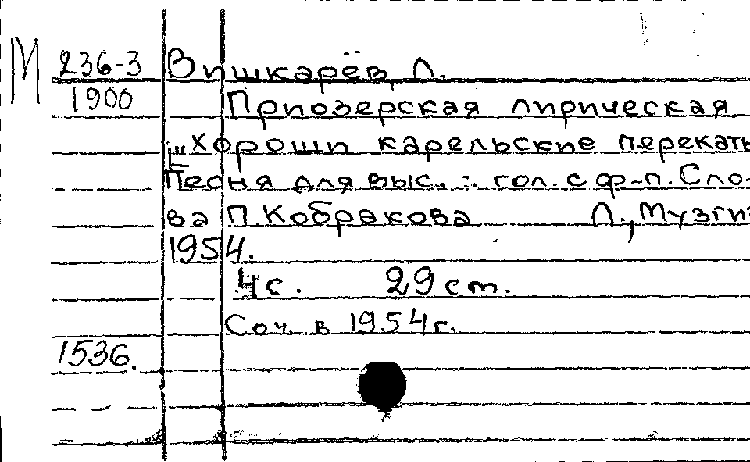 М 236-3 Вишкарёв, Л.
1900 Приозерская лирическая
"Хороши карельские перекаты
Песня для выс. гол. с ф-п. Сло-
ва П. Кобракова Л., Музгиз
1954.
4с. 29 см.
Соч. в 1954г.
1536.